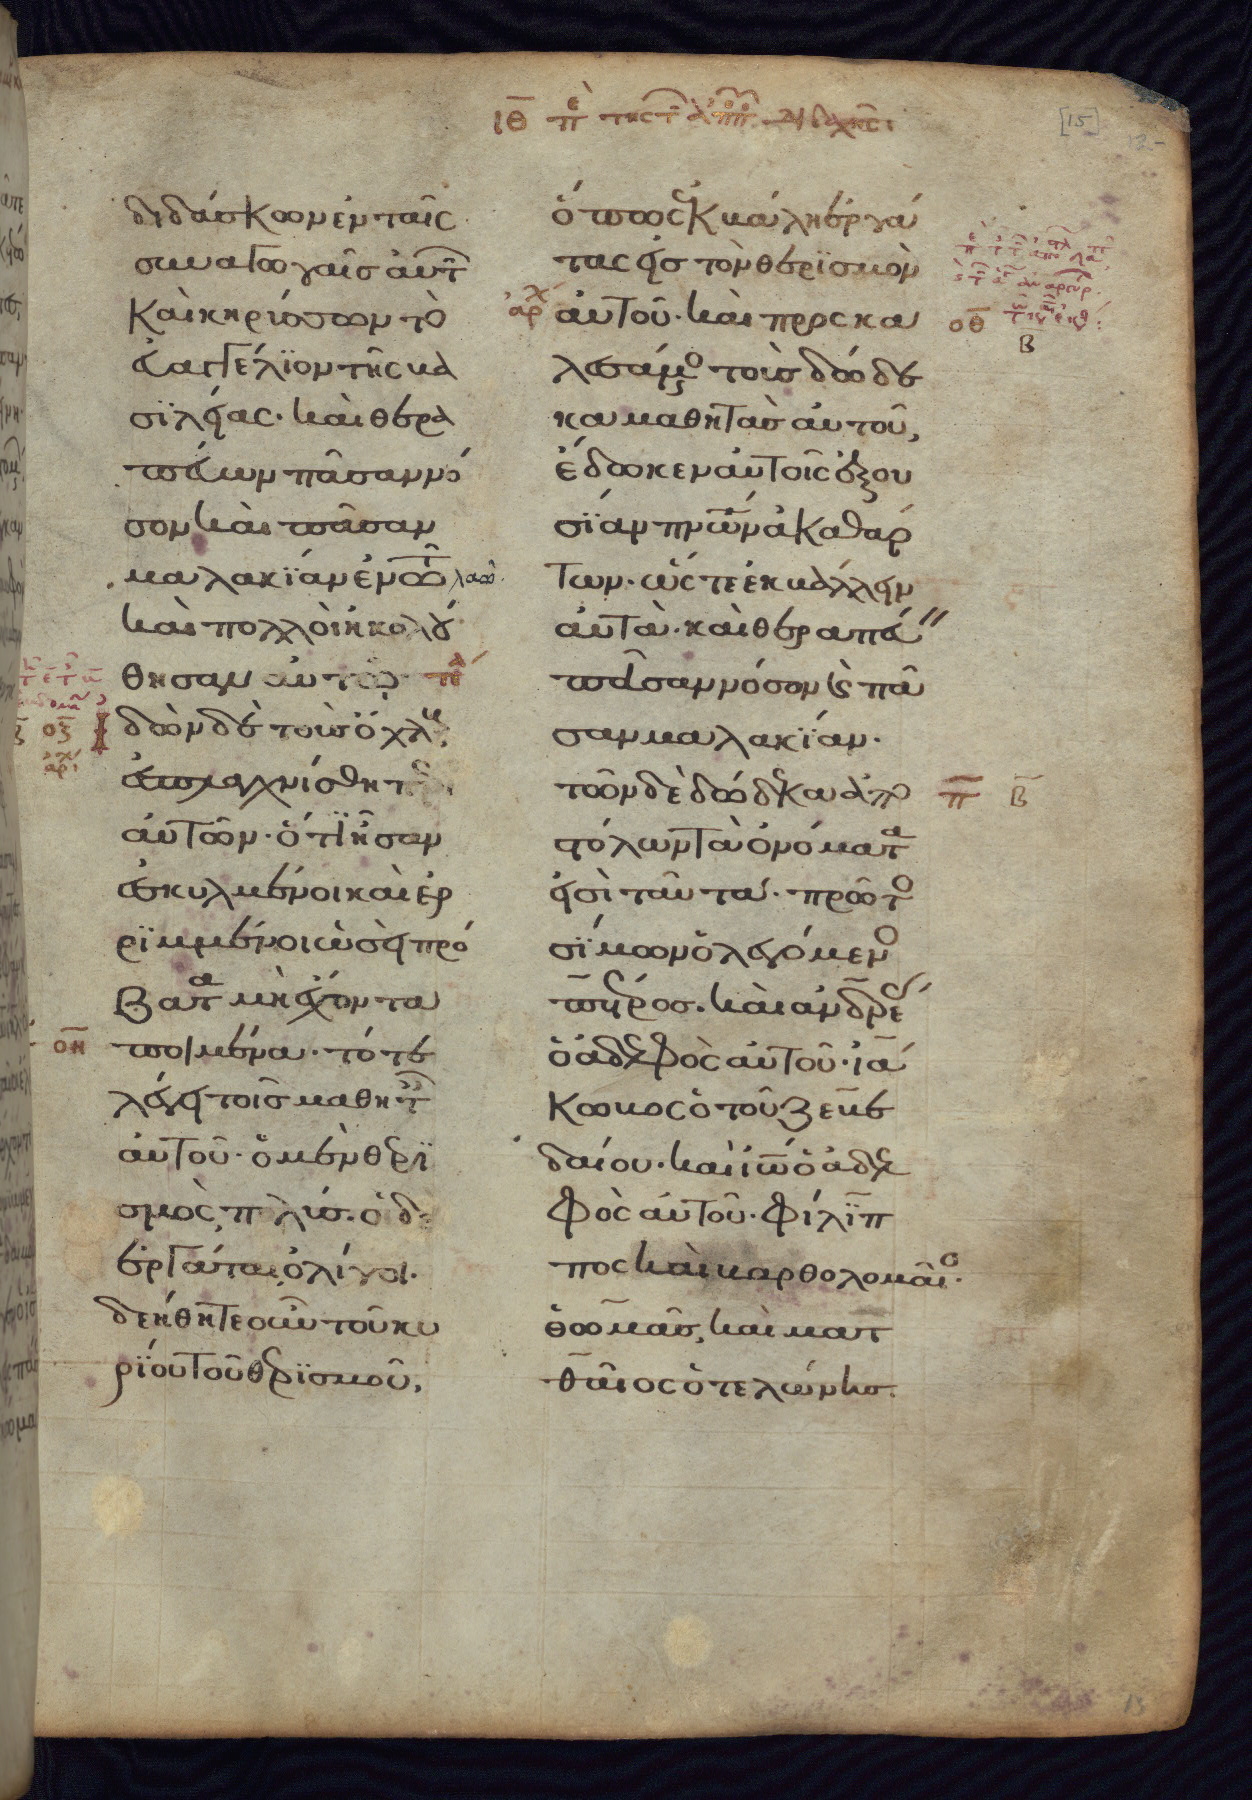 ΙΘ πε της τ αππ διδαχης
διδάσκων ἐν ταῖς
συναγωγαῖς αὐτ
Καὶ κηρύσσων τὸ
εὐαγγέλϊον τῆς βα
σϊλείας· καὶ θερα
πεύων πᾶσαν νό
σον καὶ πᾶσαν
μαλακϊάν ἐν τῶ λαῶ·
καὶ πολλοὶ ἠκολού
θησαν αὐτῶ·
Ιδὼν δὲ τοὺς ὄχλους,
ἐυσπλαγχνίσθη περὶ
αὐτῶν· ὅτϊ ἦσαν
ἐσκυλμένοι καὶ ἐρ
ρϊμμένοι ὡσεὶ πρό
βατα μὴ ἔχοντα
ΟΗ ποιμένα· τότε
λέγει τοῖς μαθητ
αὐτοῦ· ὁ μὲν θερϊ
σμὸς πολύς· ὁι δὲ
ἐργάται ὀλίγοι·
δεήθητε οὖν τοῦ κυ
ρϊου τοῦ θερϊσμοῦ,
ὅπως ἐκβάλη ἐργά
τας εἰς τὸν θερϊσμὸν
αρχ αὐτοῦ· καὶ προσκα ΟΘ
Β
λεσάμενος τοὺς δώδε
κα μαθητὰς αὐτοῦ,
ἔδωκεν αὐτοῖς ἐξου
σϊάν πνων ἀκαθάρ
των· ὥστε ἐκβάλλειν
αὐτὰ· καὶ θεραπεύ
πᾶσαν νόσον καὶ πᾶ
σαν μαλακϊάν·
τῶν δὲ δώδεκα ἀπο Π Β
στόλων τὰ ὀνόματα
εἰσὶ ταῦτα· πρῶτο
σϊμων ὁ λεγόμενο
πέτρος· καὶ ἀνδρέ
ὁ ἀδελφὸς αὐτοῦ· ϊά
κωβος ὁ τοῦ ζεβε
δαίου· καὶ ϊω ὁ ἀδελ
φὸς αὐτοῦ· φίλϊπ
πος καὶ βαρθολομαῖο·
θωμᾶς, καὶ ματ
θαῖος ὁ τελώνης·